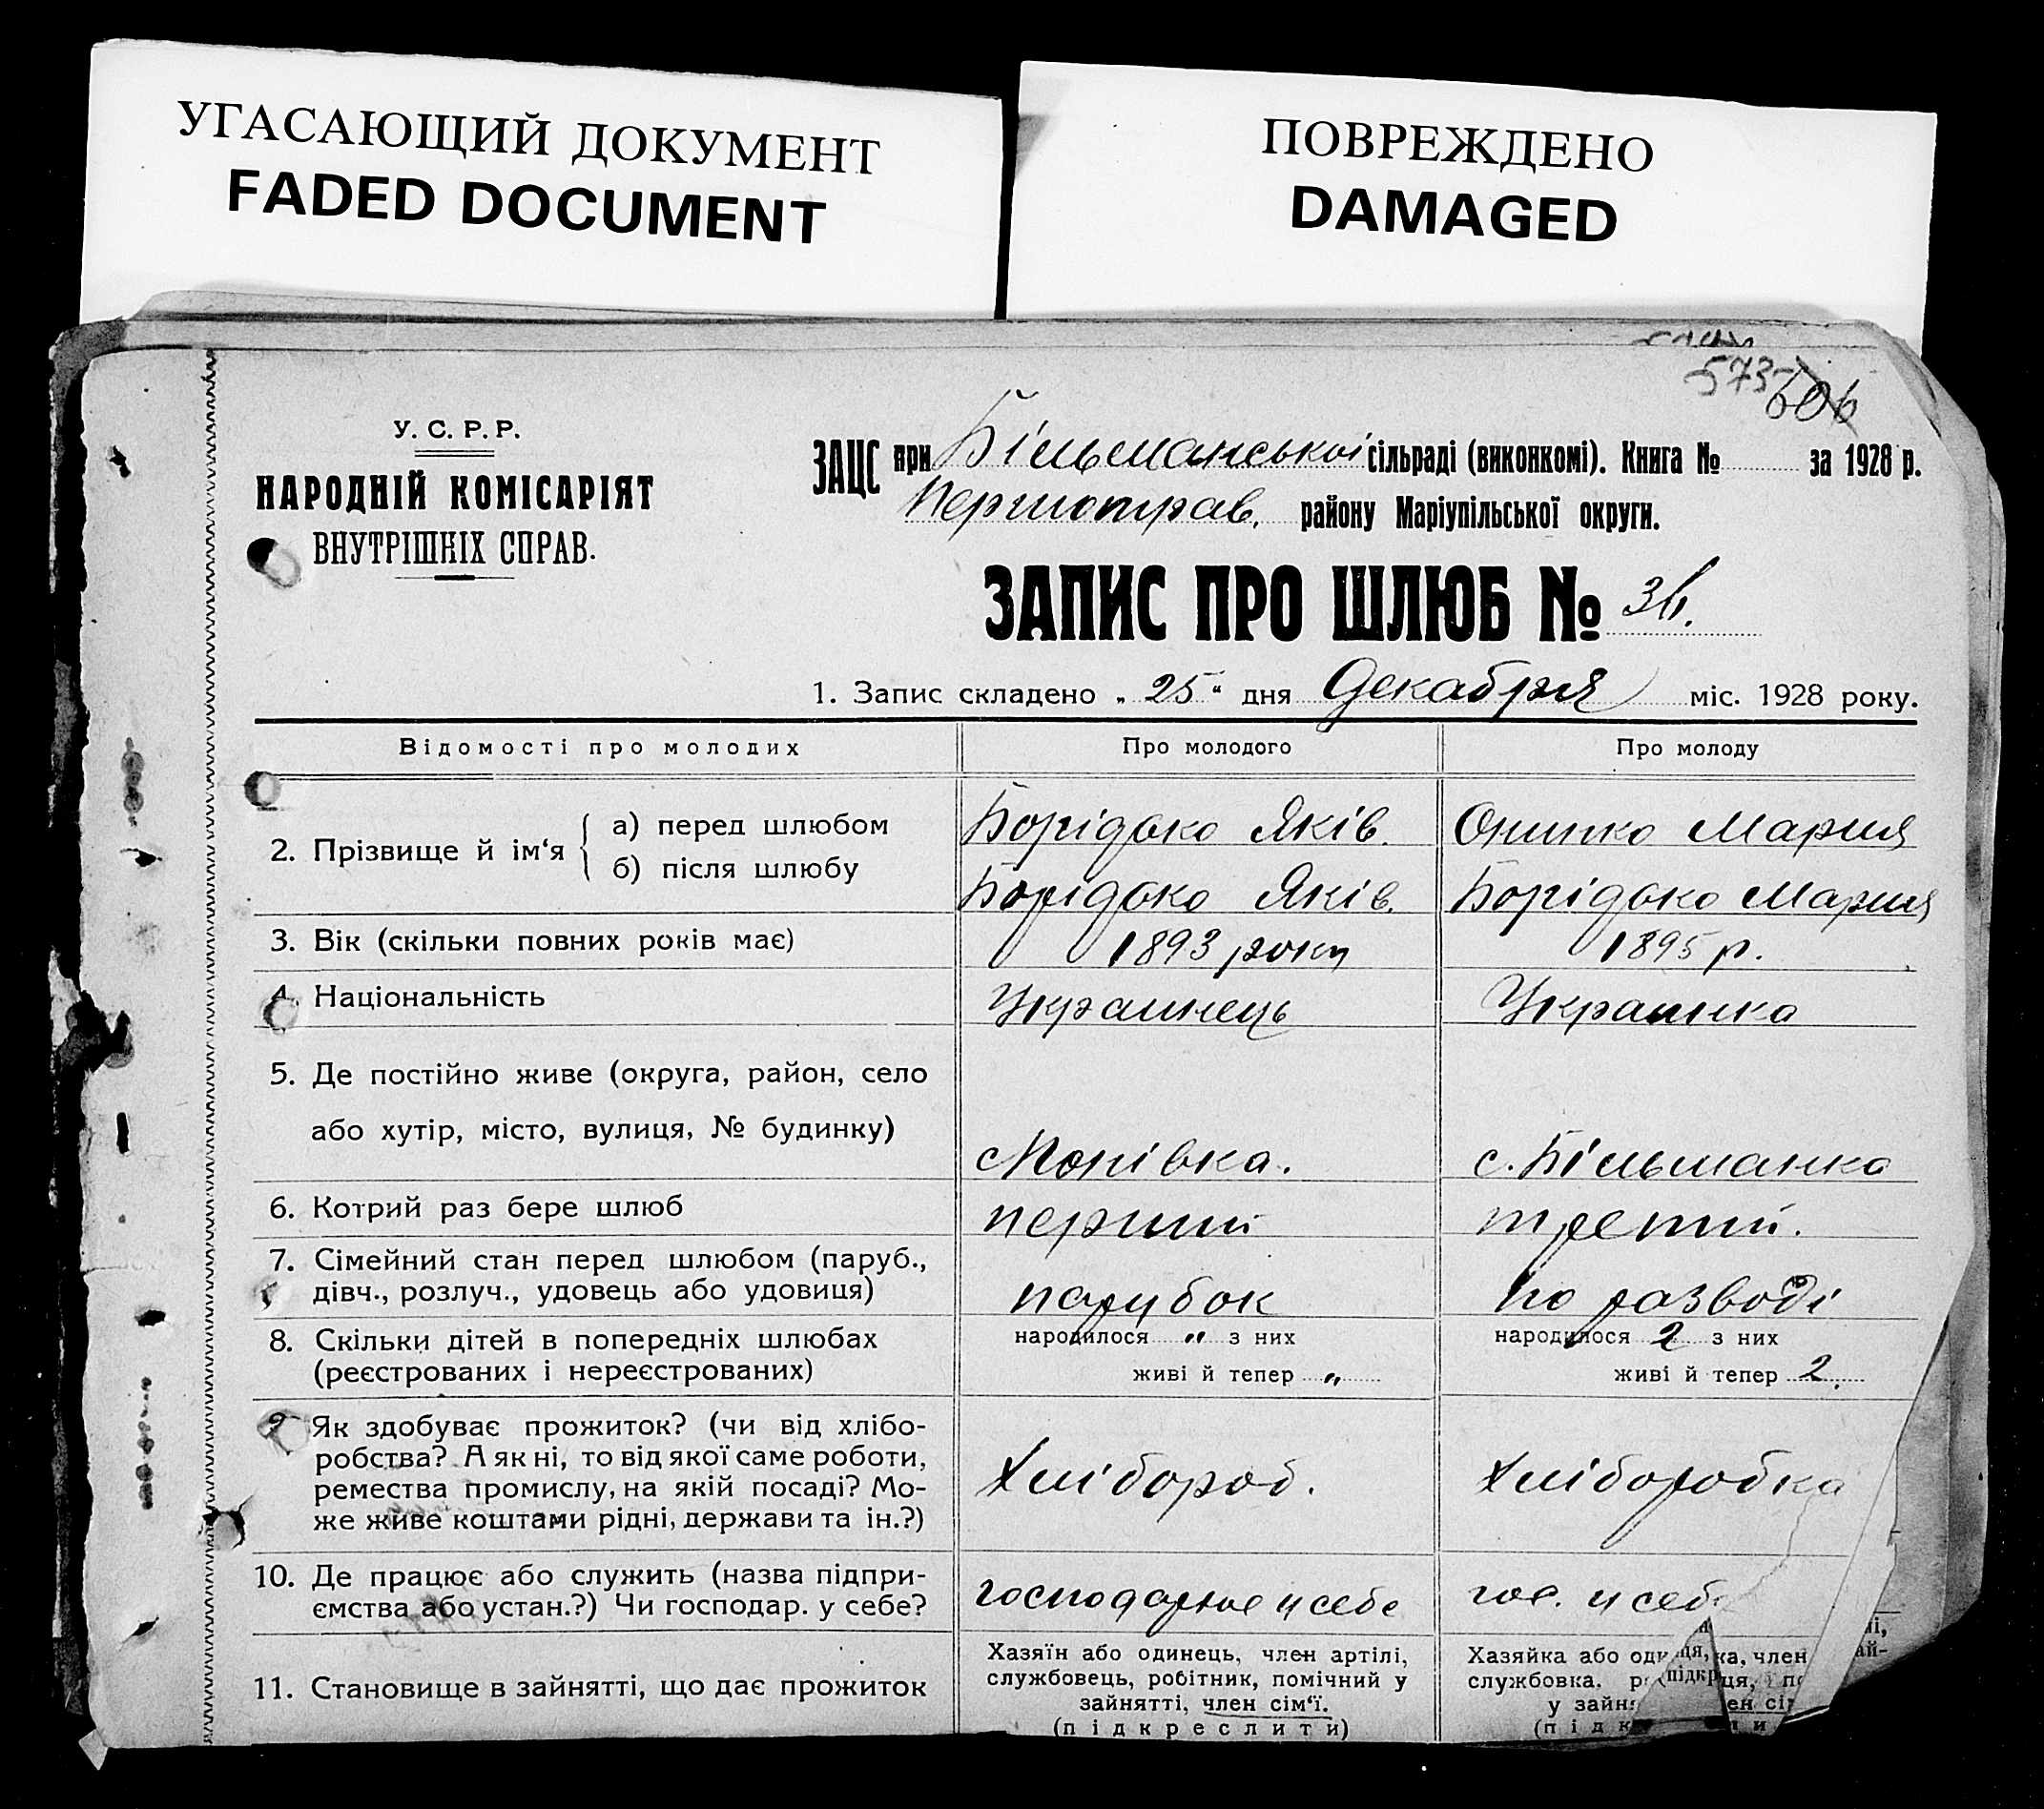 УГАСАЮЩИЙ ДОКУМЕНТ
FADED DOCUMENT
ПОВРЕЖДЕНО
DAMAGED
573 606
У. С. Р. Р.
НАРОДНІЙ КОМІСАРІЯТ
ВНУТРІШНІХ СПРАВ.
ЗАЦС при Більманської сільраді (виконкомі). Книга № за 1928 р.
Першотрав. району Маріупільської округи.
ЗАПИС ПРО ШЛЮБ №
1. Запис складено „ 25 “ дня Декабря міс. 1928 року.
Відомості про молодих Про молодого Про молоду
2. Прізвище й ім‘я а) перед шлюбом Борідько Яків. Онипко Мария
б) після шлюбу Борідько Яків. Борідько Мария
3. Вік (скільки повних років має) 1893 року 1895 р.
4. Національність Украинець Украинка
5. Де постійно живе (округа, район, село
або хутір, місто, вулиця, № будинку) с. Більманка
6. Котрий раз бере шлюб перший третий.
7. Сімейний стан перед шлюбом (паруб.,
дівч., розлуч., удовець або удовиця) парубок по разводі
8. Скільки дітей в попередніх шлюбах народилося „ з них народилося 2 з них
(реєстрованих і нереєстрованих) живі й тепер „ живі й тепер 2.
9. Як здобуває прожиток? (чи від хлібо-
робства? А як ні, то від якої саме роботи,
ремества промислу, на якій посаді? Мо- Хлібороб. Хліборобка
же живе коштами рідні, держави та ін.?)
10. Де працює або служить (назва підпри-
ємства або устан.?) Чи господар. у себе? господарює у себе гос. у себе
11. Становище в зайнятті, що дає прожиток
Хазяїн або одинець, член артілі,
службовець, робітник, помічний у
зайнятті, член сім‘ї.
(підкреслити)
Хазяйка або член
службовка,
у